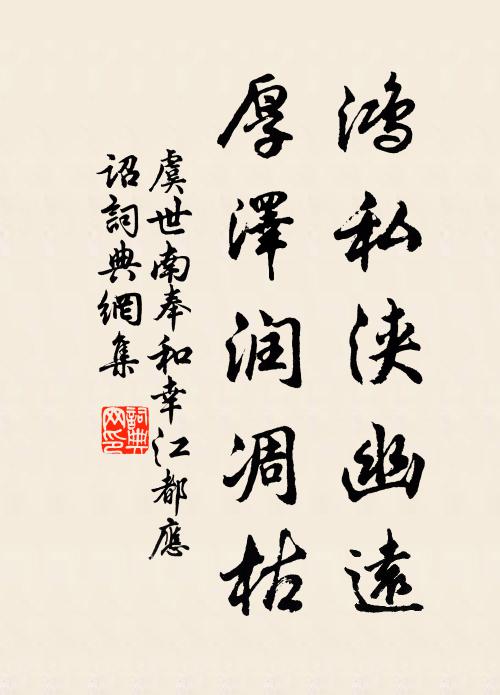 鴻私浹幽遠
厚澤潤凋枯
虞世南奉和幸江都應
詔詞典網集
詞典网印